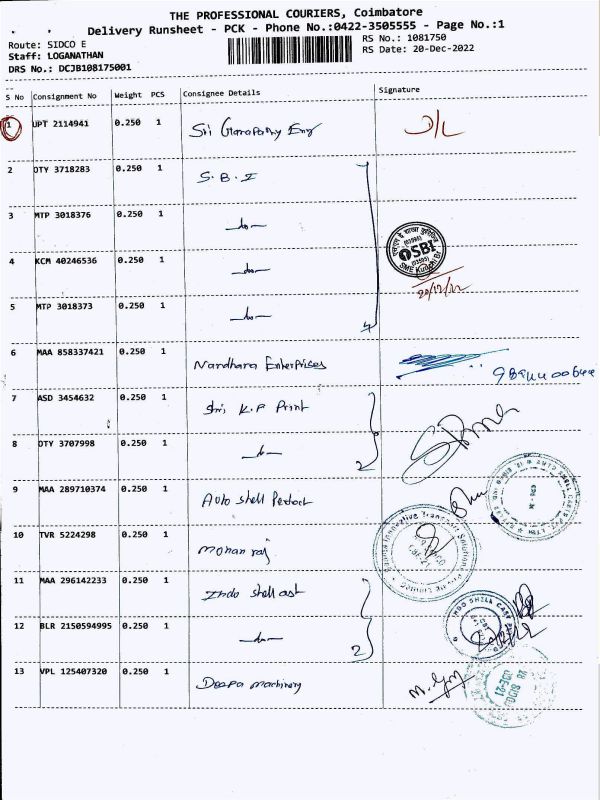 THE PROFESSIONAL COURIERS, Coimbatore
Delivery Runsheet - PCK - Phone No.:0422-3505555 - Page No.:1
Route: SIDCO E
RS No.: 1081750
Staff: LOGANATHAN
RS Date: 20-Dec-2022
DRS No.: DCJB108175001
S No Consignment No Weight PCS Consignee Details Signature
1 UPT 2114941 0.250 1 Sri Ganapathy Eng
2 DTY 3718283 0.250 1 S.B.I
3 MTP 3018376 0.250 1 -do-
4 KCM 40246536 0.250 1 -do-
SBI
20/12/22
5 MTP 3018373 0.250 1 -do-
4
6 MAA 858337421 0.250 1 Nandhana Enterprises
7 ASD 3454632 0.250 1 Shri K.P Print
8 DTY 3707998 0.250 1 -do-
2
9 MAA 289710374 0.250 1 Auto shell Perdact
10 TVR 5224298 0.250 1 Mohan raj
11 MAA 296142233 0.250 1 Indo shell cast
12 BLR 2150594995 0.250 1 -do-
2
13 VPL 125407320 0.250 1 Deepa machinery